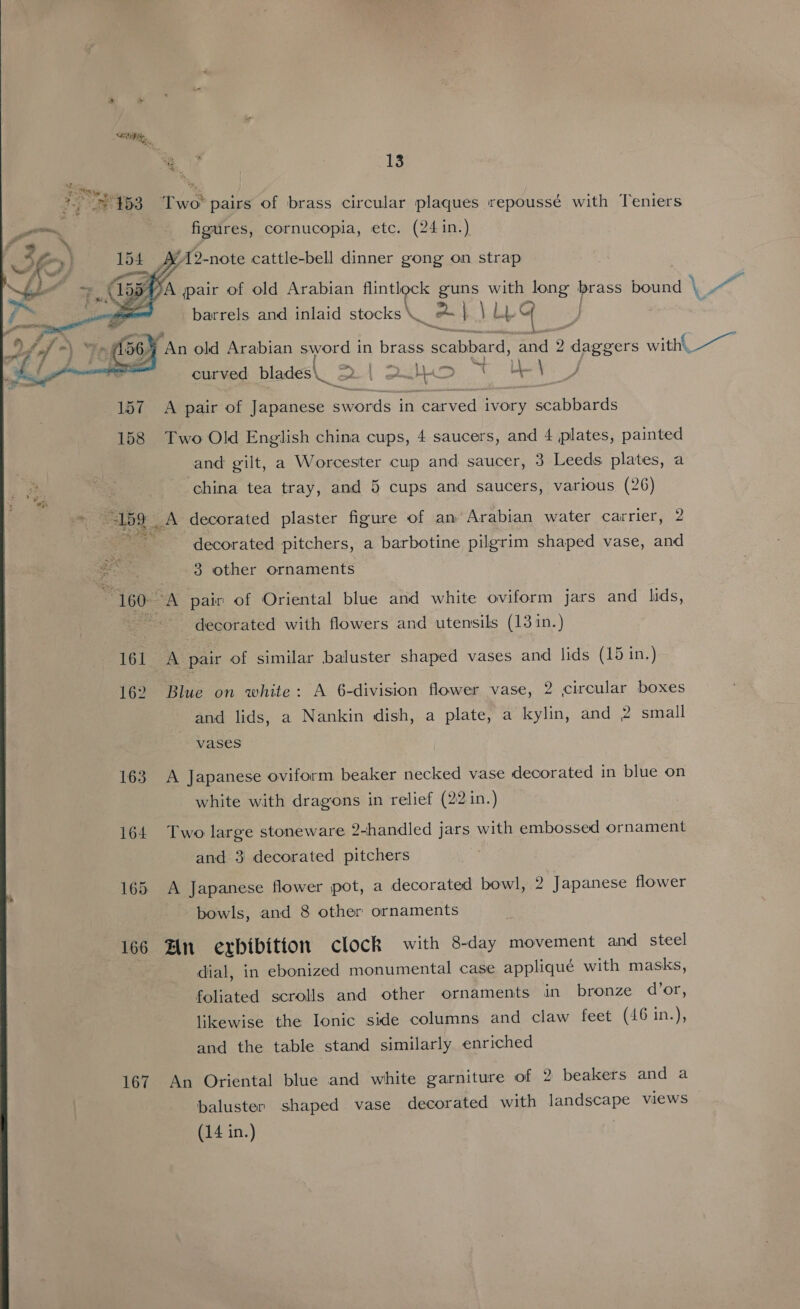 13
153 Two pairs of brass circular plaques repoussé with Teniers
figures, cornucopia, etc. (24 in.)
154 A 12-note cattle-bell dinner gong on strap
155 A pair of old Arabian flintlock guns with long brass bound
barrels and inlaid stocks
156 An old Arabian sword in brass scabbard, and 2 daggers with
curved blades
157 A pair of Japanese swords in carved ivory scabbards
158 Two Old English china cups, 4 saucers, and 4 plates, painted
and gilt, a Worcester cup and saucer, 3 Leeds plates, a
china tea tray, and 5 cups and saucers, various (26)
159 A decorated plaster figure of an Arabian water carrier, 2
decorated pitchers, a barbotine pilgrim shaped vase, and
3 other ornaments
160 A pair of Oriental blue and white oviform jars and lids,
decorated with flowers and utensils (13 in.)
161 A pair of similar baluster shaped vases and lids (15 in.)
162 Blue on white: A 6-division flower vase, 2 circular boxes
and lids, a Nankin dish, a plate, a kylin, and 2 small
vases
163 A Japanese oviform beaker necked vase decorated in blue on
white with dragons in relief (22 in.)
164 Two large stoneware 2-handled jars with embossed ornament
and 3 decorated pitchers
165 A Japanese flower pot, a decorated bowl, 2 Japanese flower
bowls, and 8 other ornaments
166 An exhibition clock with 8-day movement and steel
dial, in ebonized monumental case appliqué with masks,
foliated scrolls and other ornaments in bronze d'or,
likewise the Ionic side columns and claw feet (46 in.),
and the table stand similarly enriched
167 An Oriental blue and white garniture of 2 beakers and a
baluster shaped vase decorated with landscape views
(14 in.)